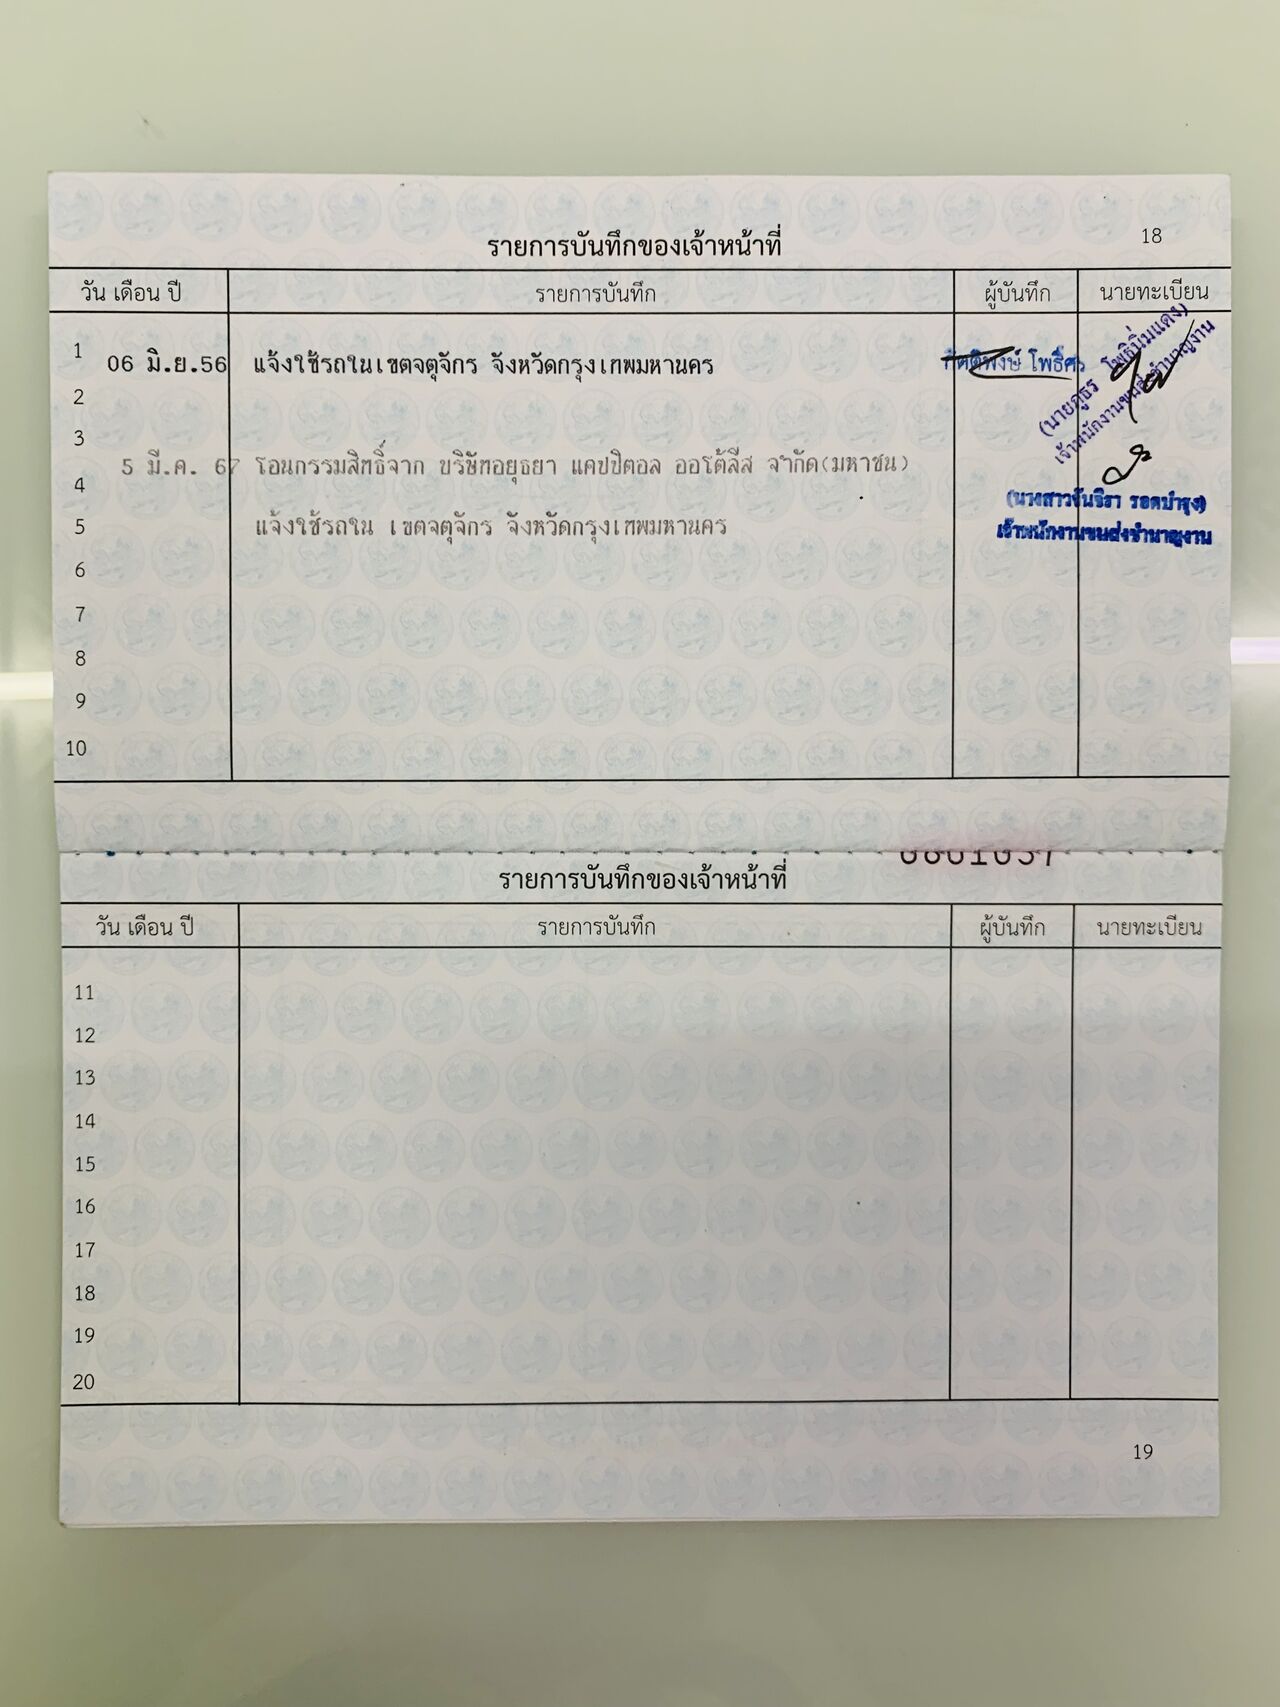 18
รายการบันทึกของเจ้าหน้าที่
วัน เดือน ปี รายการบันทึก ผู้บันทึก นายทะเบียน
1 06 มิ.ย.56 แจ้งใช้รถในเขตจตุจักร จังหวัดกรุงเทพมหานคร
(นายภูธร โพธิ์นิ่มแดง)
เจ้าพนักงานขนส่งชำนาญงาน
2
3
5 มี.ค. 67 โอนกรรมสิทธิ์จาก บริษัทอยุธยา แคปปิตอล ออโต้ลีส จำกัด(มหาชน)
4
(นางสาวจันจิรา รอดบำรุง)
เจ้าพนักงานขนส่งชำนาญงาน
5 แจ้งใช้รถใน เขตจตุจักร จังหวัดกรุงเทพมหานคร
6
7
8
9
10
รายการบันทึกของเจ้าหน้าที่
วัน เดือน ปี รายการบันทึก ผู้บันทึก นายทะเบียน
11
12
13
14
15
16
17
18
19
20
19